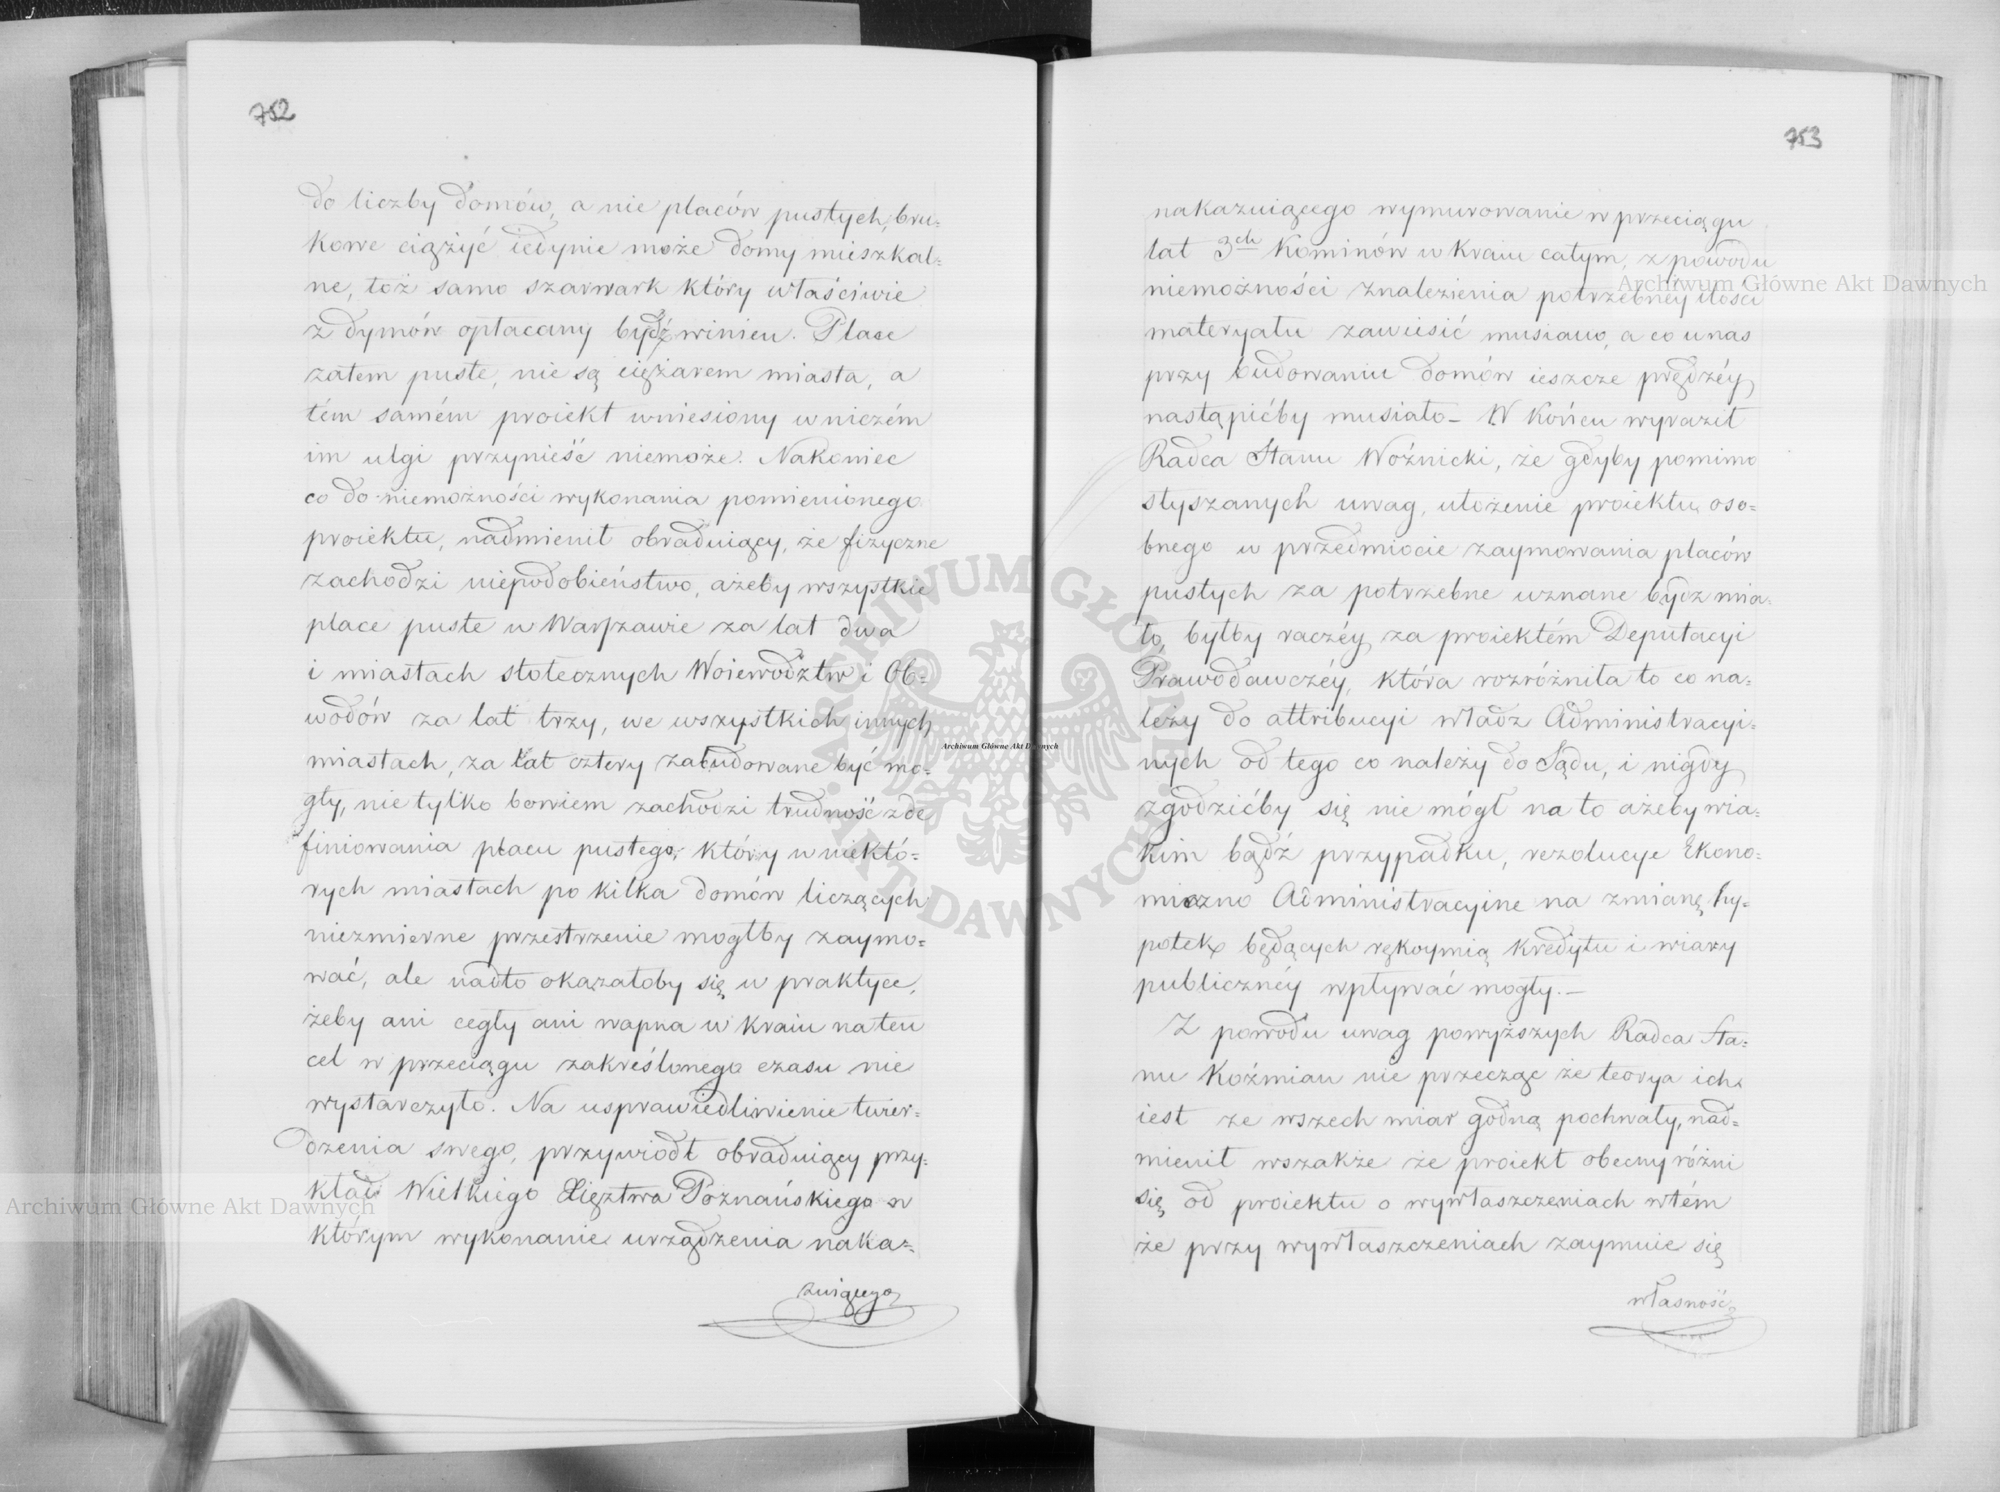 752
do liczby domów, a nie placów pustych, bru-
kowe ciążyć iedynie może domy mieszkal-
ne, toż samo szarwark który właściwie
z dymów opłacany bydź winien. Place
zatem puste, nie są ciężarem miasta, a
tém samém proiekt wniesiony w niczém
im ulgi przynieść niemoże. Nakoniec
co do niemożności wykonania pomienionego
proiektu, nadmienił obraduiący, że fizyczne
zachodzi niepodobieństwo, ażeby wszystkie
place puste w Warszawie za lat dwa
i miastach stołecznych Woiewództw i Ob-
wodów za lat trzy, we wszystkich innych
miastach, za lat cztery zabudowane być mo-
gły, nie tylko bowiem zachodzi trudność zde
finiowania placu pustego, który w niektó-
rych miastach po kilka domów liczących
niezmierne przestrzenie mogłby zaymo-
wać, ale nadto okazałoby się w praktyce,
żeby ani cegły ani wapna w kraiu na ten
cel w przeciągu zakreślonego czasu nie
wystarczyło. Na usprawiedliwienie twier-
dzenia swego, przywiódł obraduiący przy-
kład Wielkiego Xięztwa Poznańskiego w
którym wykonanie urządzenia naka-
zuiącego
753
nakazuiącego wymurowanie w przeciągu
lat 3ch Kominów w kraiu całym, z powodu
niemożności znalezienia potrzebney ilości
materyału zawiesić musiano, a co u nas
przy budowaniu domów ieszcze prędzéy
nastąpićby musiało – W końcu wyraził
Radca Stanu Woźnicki, że gdyby pomimo
słyszanych uwag, ułożenie proiektu oso-
bnego w przedmiocie zaymowania placów
pustych za potrzebne uznane bydz mia-
ło, byłby raczéy za proiektém Deputacyi
Prawodawczéy, która rozróżniła to co na-
leży do attribucyi władz Administracyi-
nych od tego co należy do Sądu, i nigdy
zgodzićby się nie mógł na to ażeby w ia-
kim bądź przypadku, rezolucye Ekono-
miczno Administracyine na zmianę hy-
potek będących rękoymią kredytu i wiary
publicznéy wpływać mogły. –
Z powodu uwag powyższych Radca Sta-
nu Koźmian nie przecząc że teorya ich
iest ze wszech miar godną pochwały, nad-
mienił wszakże że proiekt obecny różni
się od proiektu o wywłaszczeniach w tém
że przy wywłaszczeniach zaymuie się
własność
Archiwum Główne Akt Dawnych
Archiwum Główne Akt Dawnych
Archiwum Główne Akt Dawnych
ARCHIWUM GŁÓWNE
AKT DAWNYCH